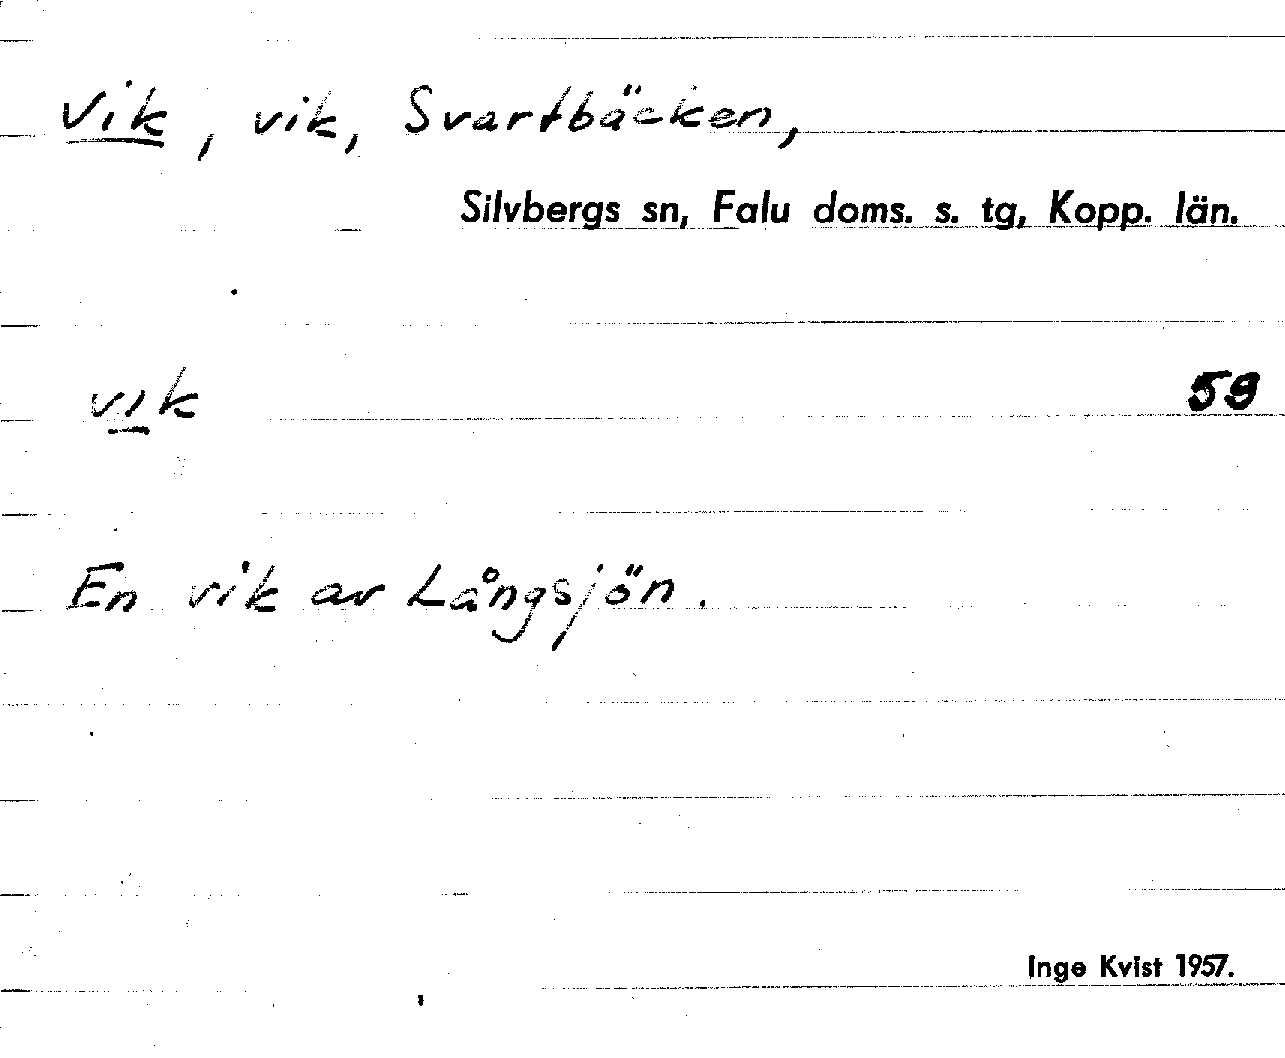 Vik, vik, Svartbäcken,
Silvbergs sn, Falu doms. s. tg, Kopp. län.
vik 59
En vik av Långsjön.
Inge Kvist 1957.